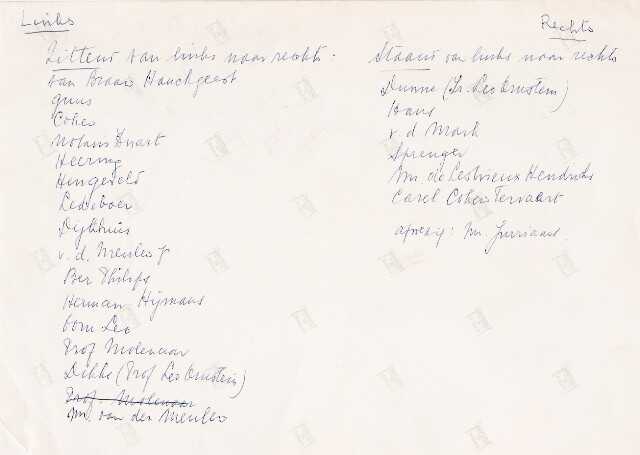 Links
Zittend van links naar rechts.
van Braam Houckgeest
guus
Cohen
Nolans Zwart
Heering
Hengeveld
Ledeboer
Dijkhuis
v. d. Meulen
Ber Philips
Herman Hijmans
oom Leo
Prof Molenaar
Dikke (Prof Leo Ornstein)
Prof. Molenaar
Mr. van der Meulen
Rechts
Staand van links naar rechts
Dunne (Dr. Leo Ornstein)
Hans
v. d. Mark
Sprenger
Mr. de Hendriks
Carel Cohen Tervaert
afwezig: Mr. Jurriaans.